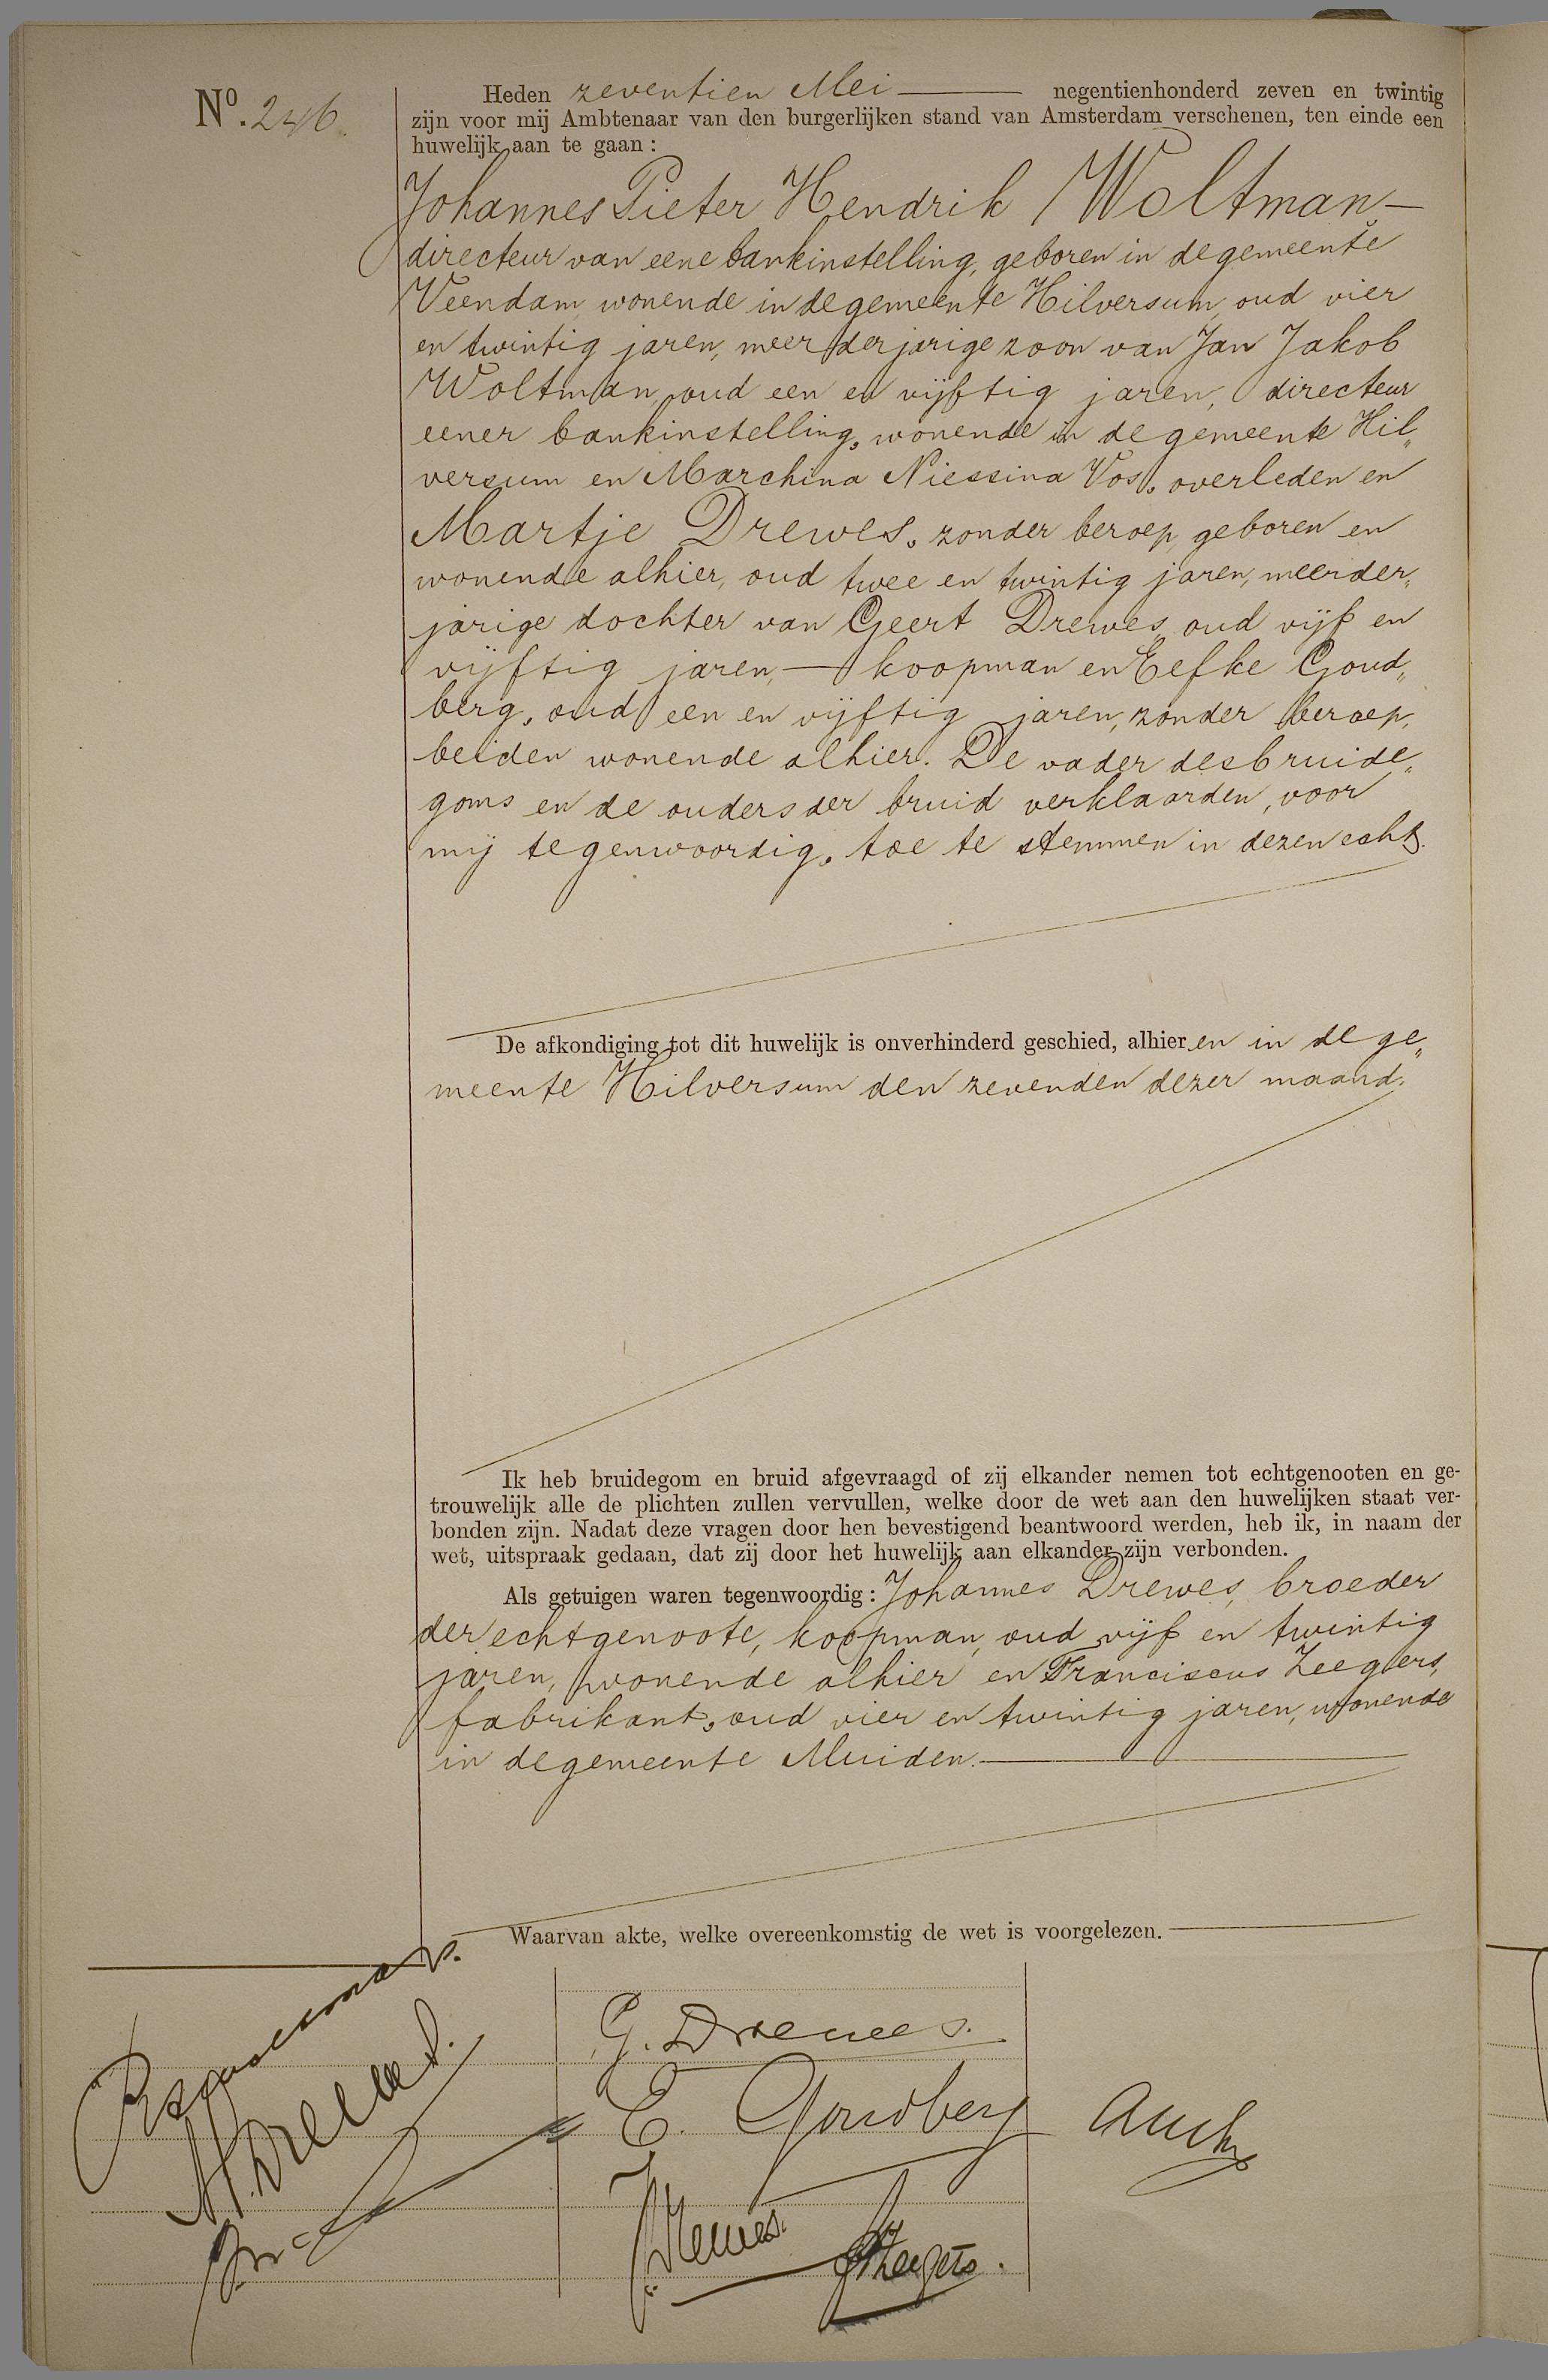 Nº. 246.
Heden zeventien Mei — negentienhonderd zeven en twintig
zijn voor mij Ambtenaar van den burgerlijken stand van Amsterdam verschenen, ten einde een
huwelijk aan te gaan :
Johannes Pieter Hendrik Woltman —
directeur van eene bankinstelling, geboren in de gemeente
Veendam, wonende in de gemeente Hilversum, oud vier
en twintig jaren, meerderjarige zoon van Jan Jakob
Woltman, oud een en vijftig jaren, directeur
eener bankinstelling, wonende in de gemeente Hil„
versum en Marchina Niessina Vos, overleden en
Martje Drewes, zonder beroep, geboren en
wonende alhier, oud twee en twintig jaren, meerder„
jarige dochter van Geert Drewes, oud vijf en
vijftig jaren, — koopman en Eefke Goud„
berg, oud een en vijftig jaren, zonder beroep,
beiden wonende alhier. De vader des bruide„
goms en de ouders der bruid verklaarden, voor
mij tegenwoordig, toe te stemmen in dezen echt.
De afkondiging tot dit huwelijk is onverhinderd geschied, alhier en in de ge„
meente Hilversum den zevenden dezer maand.
Ik heb bruidegom en bruid afgevraagd of zij elkander nemen tot echtgenooten en ge-
trouwelijk alle de plichten zullen vervullen, welke door de wet aan den huwelijken staat ver-
bonden zijn. Nadat deze vragen door hen bevestigend beantwoord werden, heb ik, in naam der
wet, uitspraak gedaan, dat zij door het huwelijk aan elkander zijn verbonden.
Als getuigen waren tegenwoordig : Johannes Drewes, broeder
der echtgenoote, koopman, oud vijf en twintig
jaren, wonende alhier en Franciscus Zeegers,
fabrikant, oud vier en twintig jaren, wonende
in de gemeente Muiden. —
Waarvan akte, welke overeenkomstig de wet is voorgelezen. —
M. Drewes.
G. Drewes.
E. Goudberg
J. Drewes.
F. Zeegers.